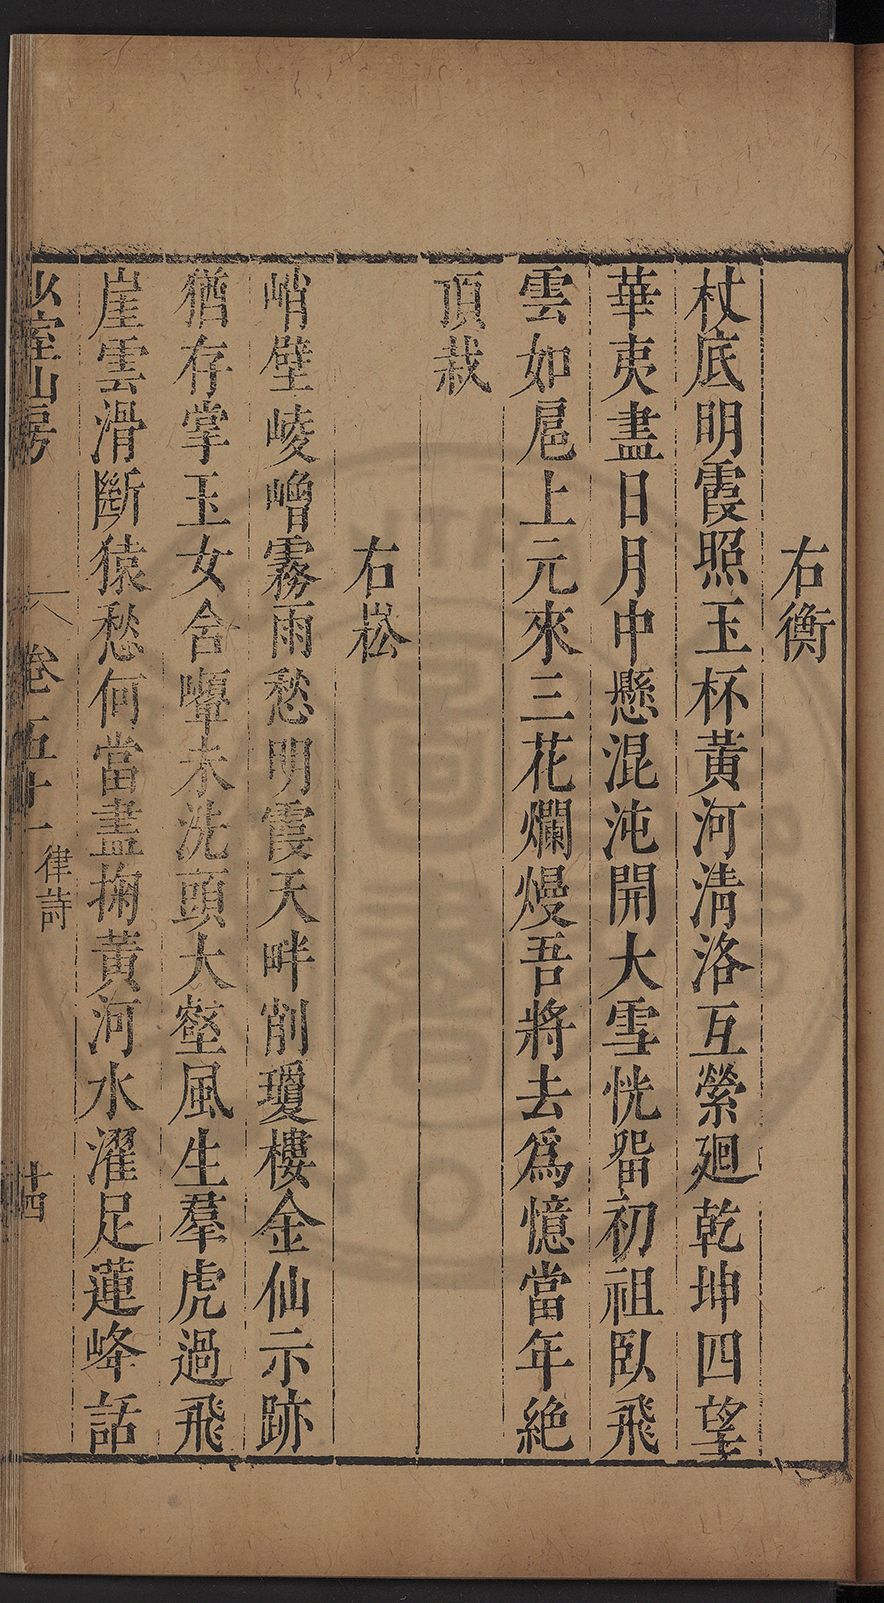 右衡
杖底明霞照玉杯黃河淸洛互縈廻乾坤四望
華夷盡日月中懸混沌開大雪恍畱初祖臥飛
雲如扈上元來三花爛熳吾將去爲憶當年絶
頂栽
右崧
峭壁崚嶒霧雨愁明霞天畔削瓊樓金仙示跡
猶存掌玉女含嚬未洗頭大壑風生羣虎過飛
崖雲滑斷猿愁何當盡掬黃河水濯足蓮峰話
少室山房
卷五十一
律詩
十四